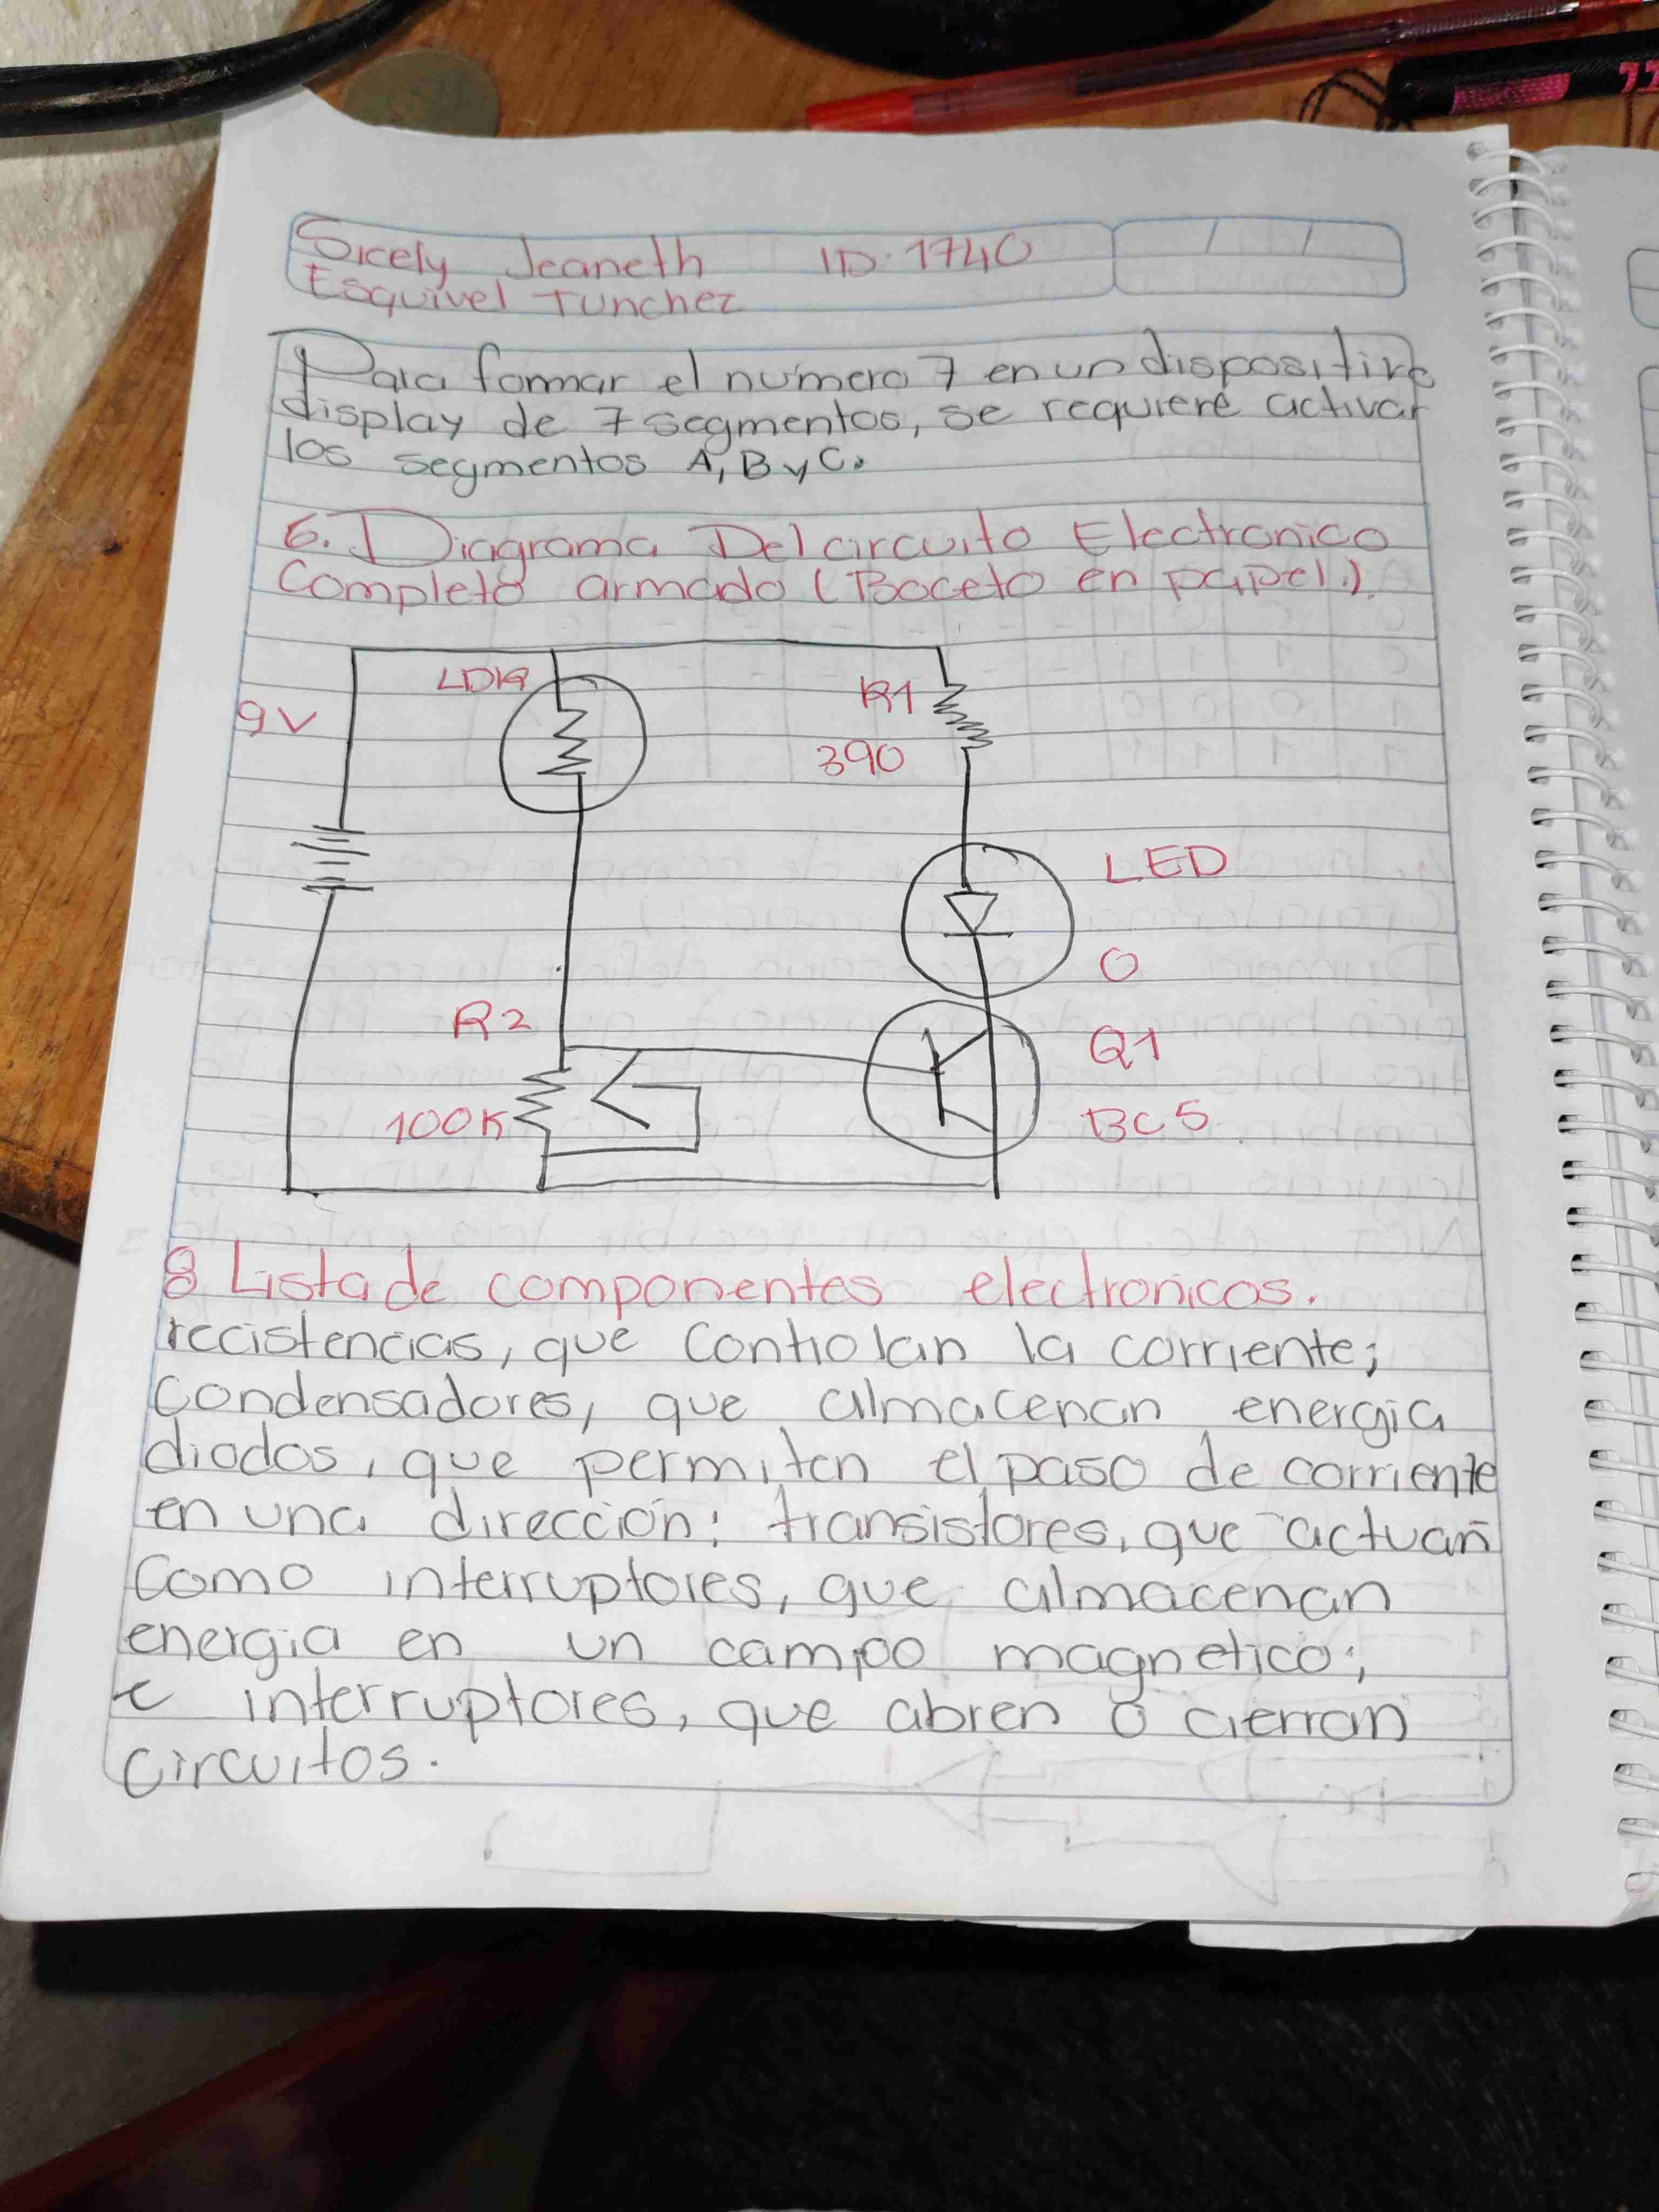 Sicely Jeaneth ID: 1740
Esquivel Tunchez
Para formar el número 7 en un dispositivo
display de 7 segmentos, se requiere activar
los segmentos A, B y C.
6. Diagrama Del circuito Electronico
Completo armado (Boceto en papel.).
LDR
R1
9V
390
LED
O
R2
Q1
100K
BC5
8 Lista de componentes electronicos.
recistencias, que controlan la corriente;
Condensadores, que almacenan energia
diodos, que permiten el paso de corriente
en una dirección; transistores, que actuan
Como interruptores, que almacenan
energia en un campo magnetico;
e interruptores, que abren o cierran
circuitos.